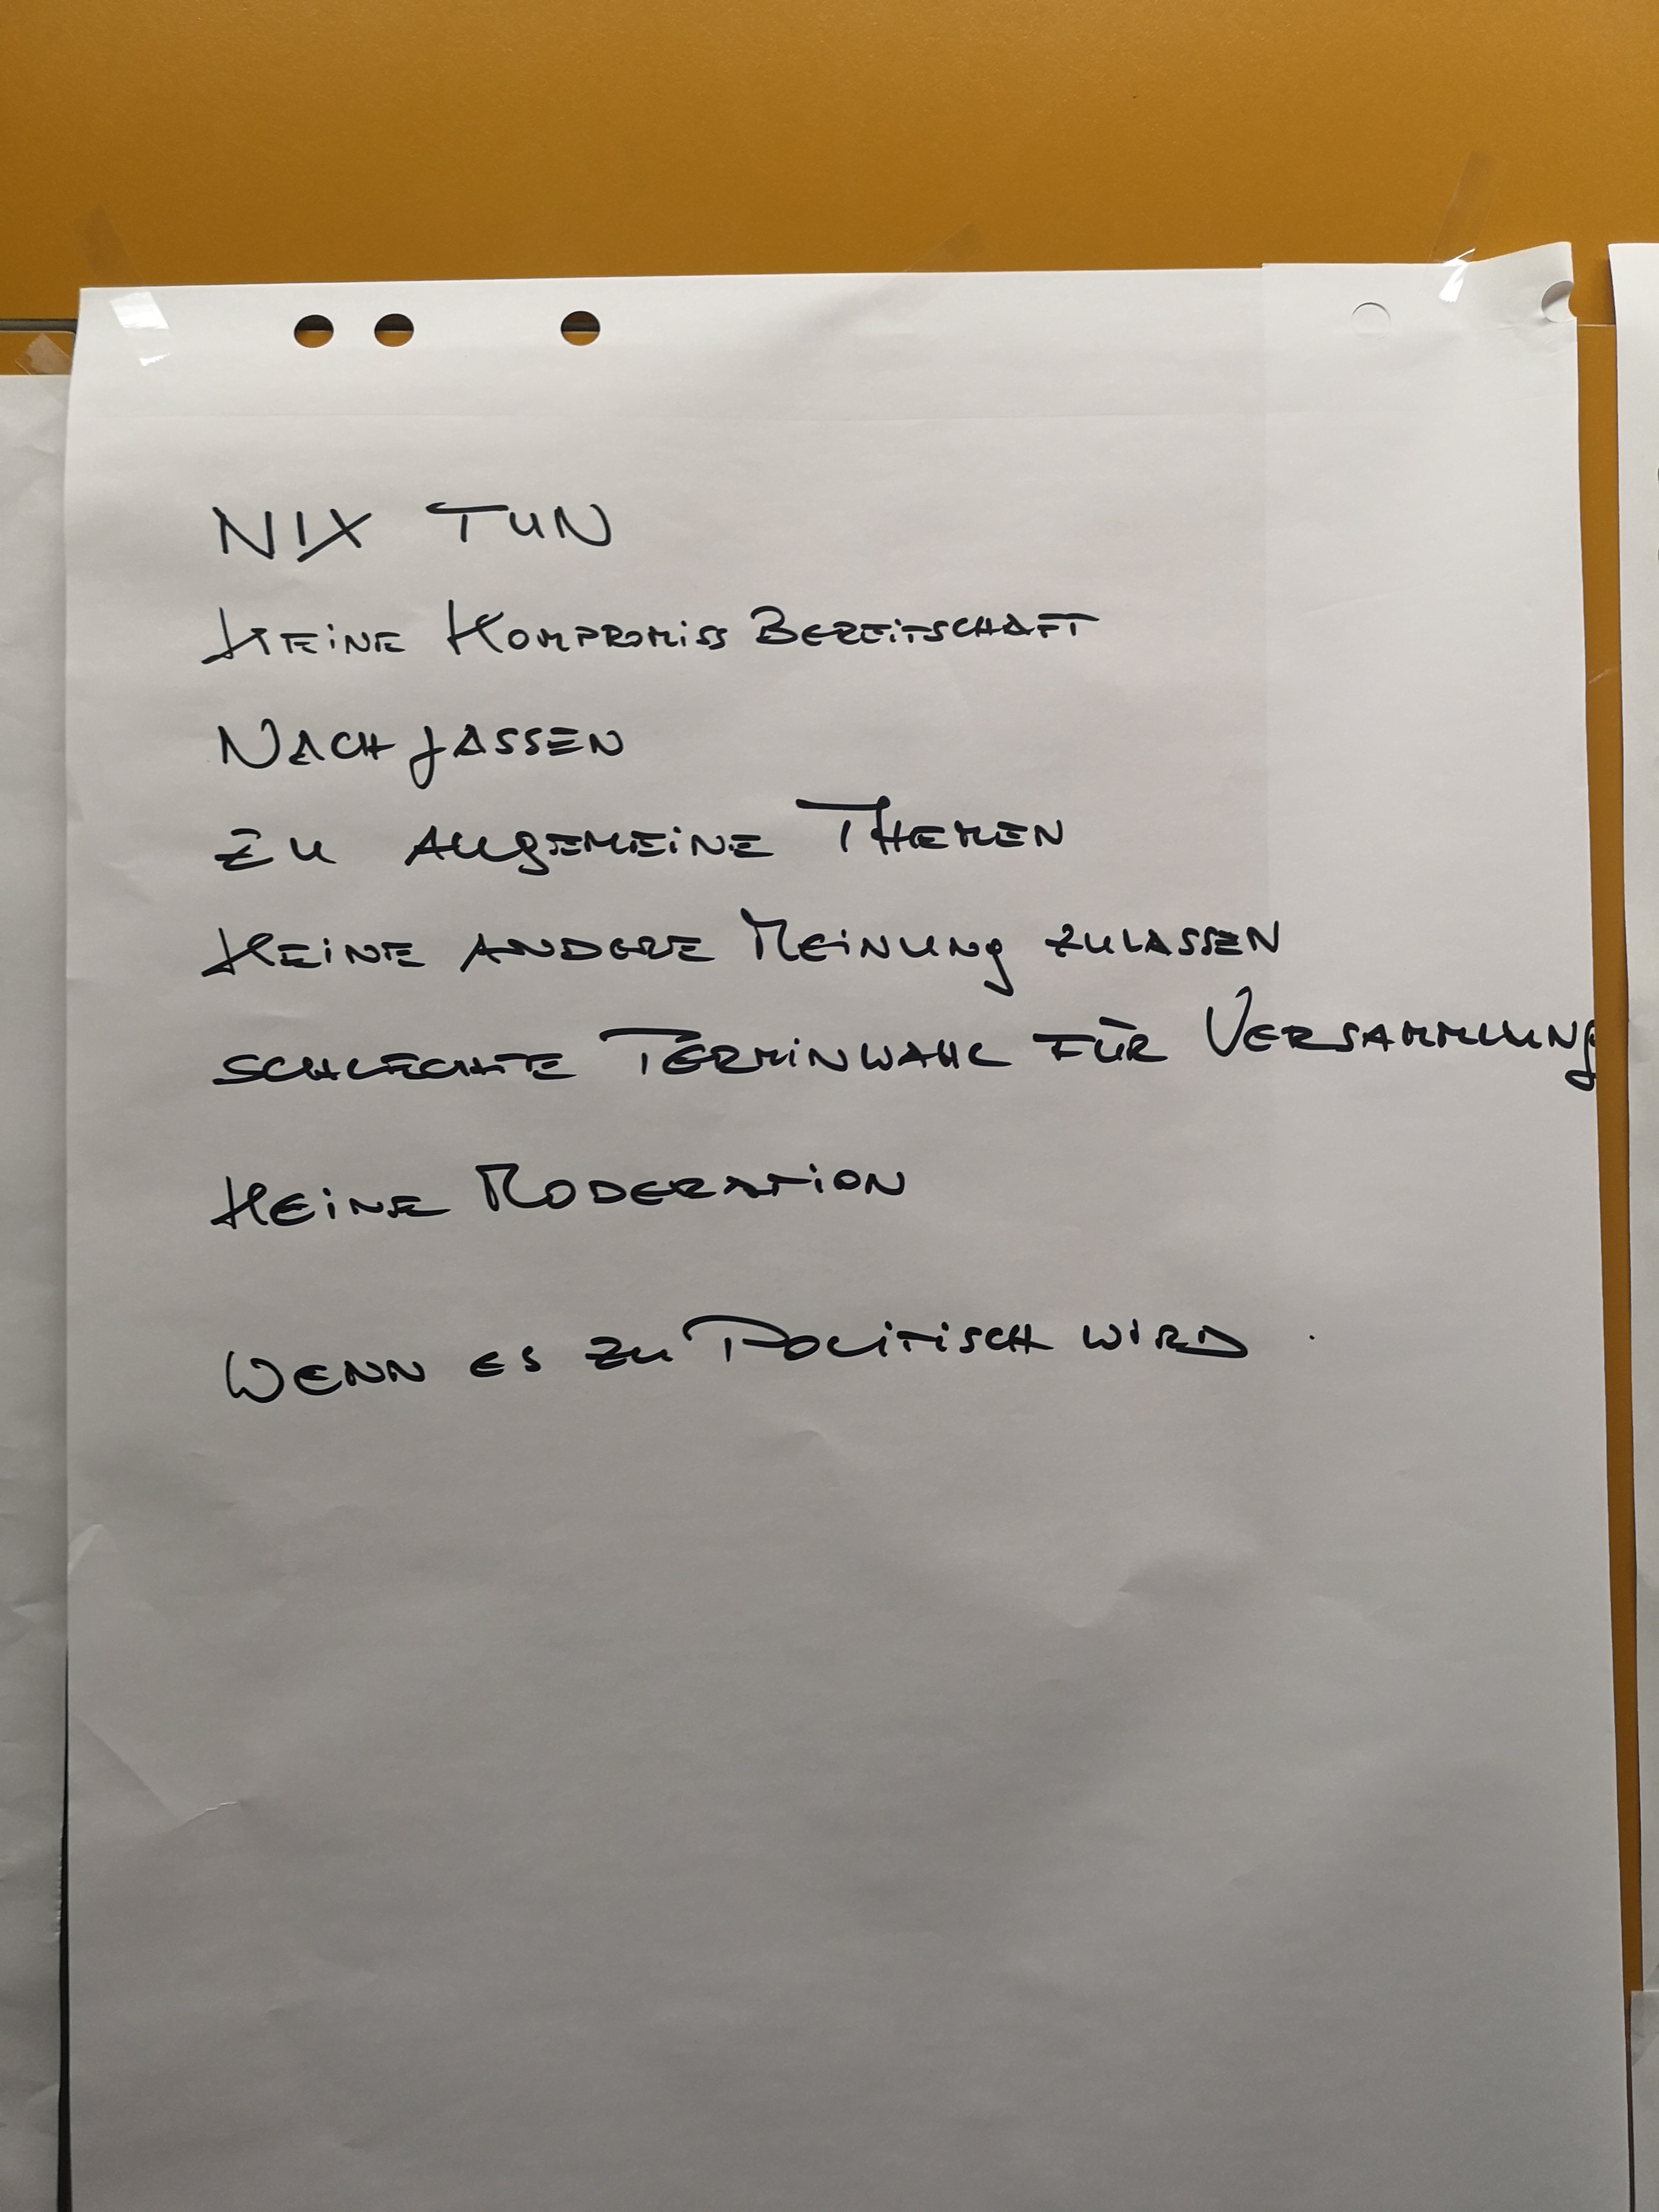 NIX TUN
KEINE KOMPROMISS BEREITSCHAFT
NACH fASSEN
ZU ALLGEMEINE THEMEN
KEINE ANDERE MEINUNG ZULASSEN
SCHLECHTE TERMINWAHL FÜR VERSAMMLUNG
KEINE MODERATION
WENN ES ZU POLITISCH WIRD